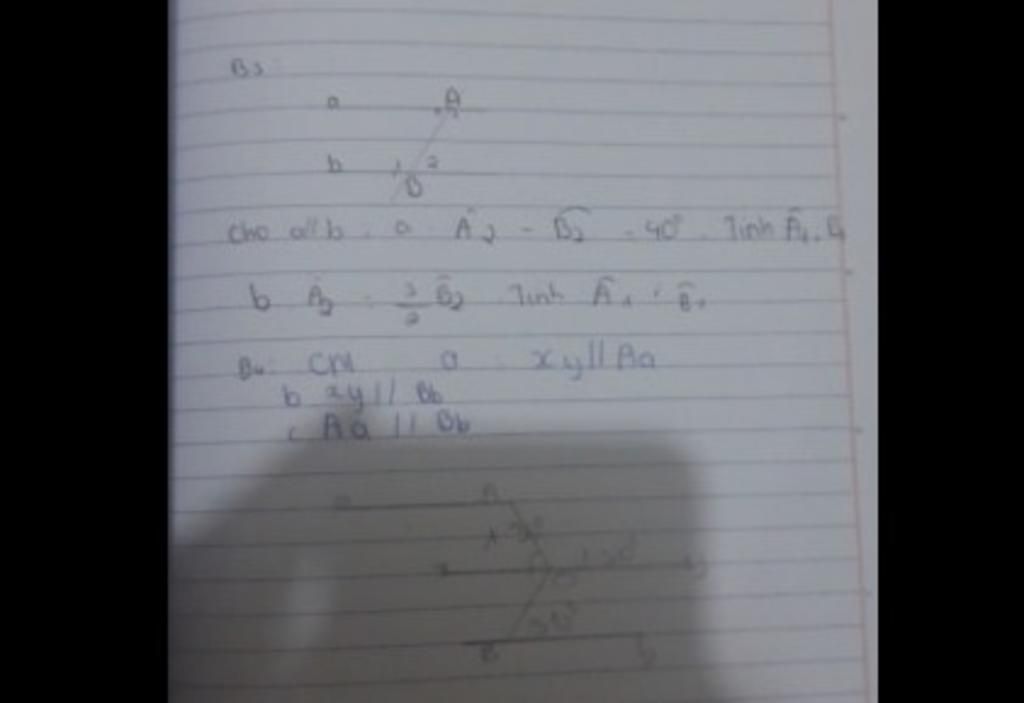 B3:
a A
b 1 2
B
Cho a//b. a. Â2 - B̂2 = 40° Tính Â1, B̂1
b Â2 = 3/2 B̂2 Tính Â1, B̂1
B4: CM a. xy // Aa
b xy // Bb
c Aa // Bb
a A
y
30°
B b